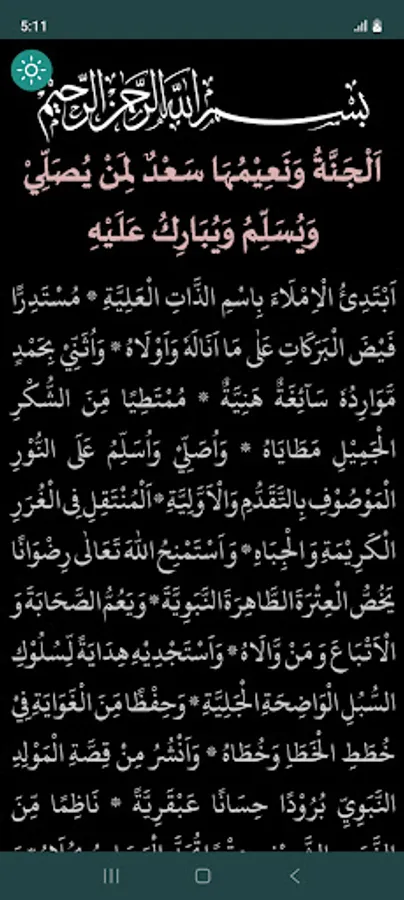 5:11
بِسْمِ اللهِ الرَّحْمٰنِ الرَّحِيْمِ
اَلْجَنَّةُ وَنَعِيْمُهَا سَعْدٌ لِمَنْ يُصَلِّيْ
وَيُسَلِّمُ وَيُبَارِكُ عَلَيْهِ
اَبْتَدِئُ الْاِمْلَاءَ بِاسْمِ الذَّاتِ الْعَلِيَّةِ * مُسْتَدِرًّا
فَيْضَ الْبَرَكَاتِ عَلٰى مَا اَنَالَهٗ وَاَوْلَاهُ * وَاُثَنِّيْ بِحَمْدٍ
مَّوَارِدُهٗ سَآئِغَةٌ هَنِيَّةٌ * مُمْتَطِيًا مِّنَ الشُّكْرِ
الْجَمِيْلِ مَطَايَاهُ * وَاُصَلِّيْ وَاُسَلِّمُ عَلَى النُّوْرِ
الْمَوْصُوْفِ بِالتَّقَدُّمِ وَالْاَوَّلِيَّةِ * اَلْمُنْتَقِلِ فِى الْغُرَرِ
الْكَرِيْمَةِ وَالْجِبَاهِ * وَاَسْتَمْنِحُ اللهَ تَعَالٰى رِضْوَانًا
يَخُصُّ الْعِتْرَةَ الطَّاهِرَةَ النَّبَوِيَّةَ * وَيَعُمُّ الصَّحَابَةَ وَ
الْاَتْبَاعَ وَمَنْ وَّالَاهُ * وَاَسْتَجْدِيْهِ هِدَايَةً لِّسُلُوْكِ
السُّبُلِ الْوَاضِحَةِ الْجَلِيَّةِ * وَحِفْظًا مِّنَ الْغَوَايَةِ فِيْ
خُطَطِ الْخَطَاِ وَخُطَاهُ * وَاَنْشُرُ مِنْ قِصَّةِ الْمَوْلِدِ
النَّبَوِيِّ بُرُوْدًا حِسَانًا عَبْقَرِيَّةً * نَاظِمًا مِّنَ